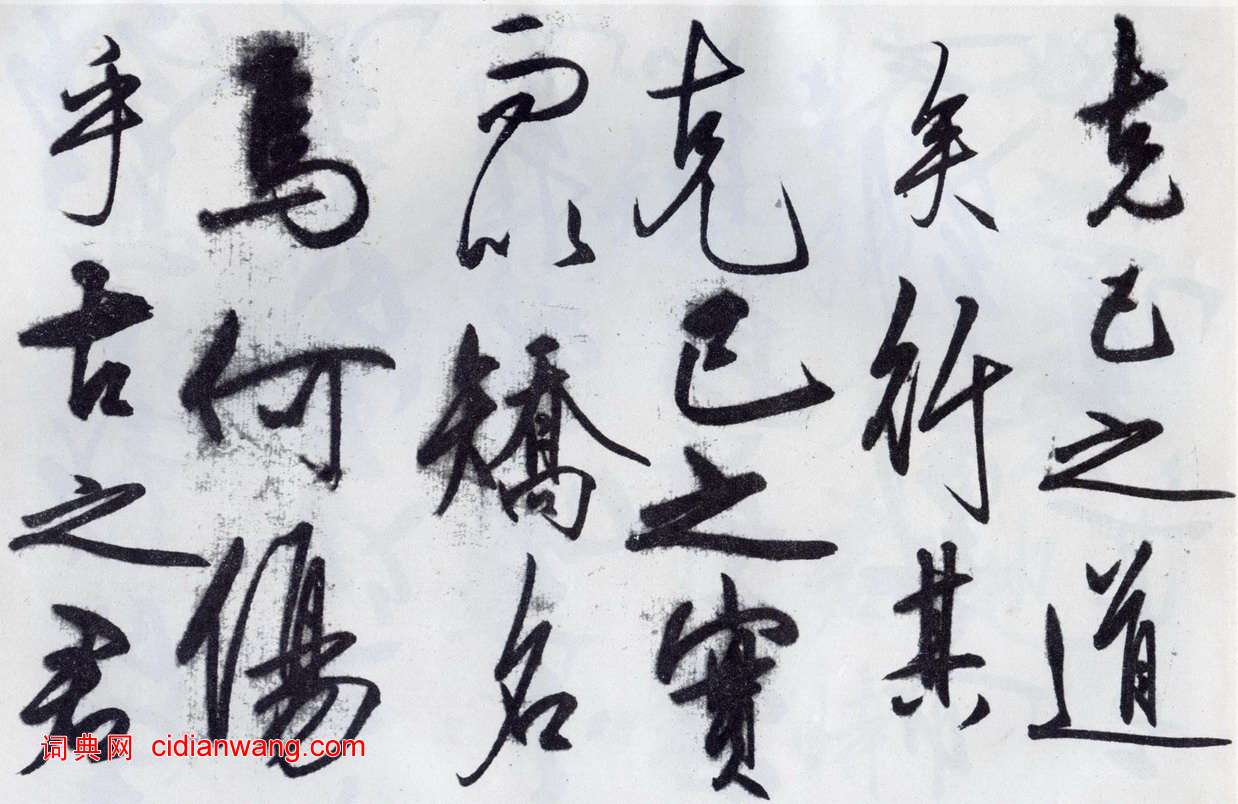 克己之道
矣行其
克己之實
而以矯名
焉何傷
乎古之君
词典网 cidianwang.com